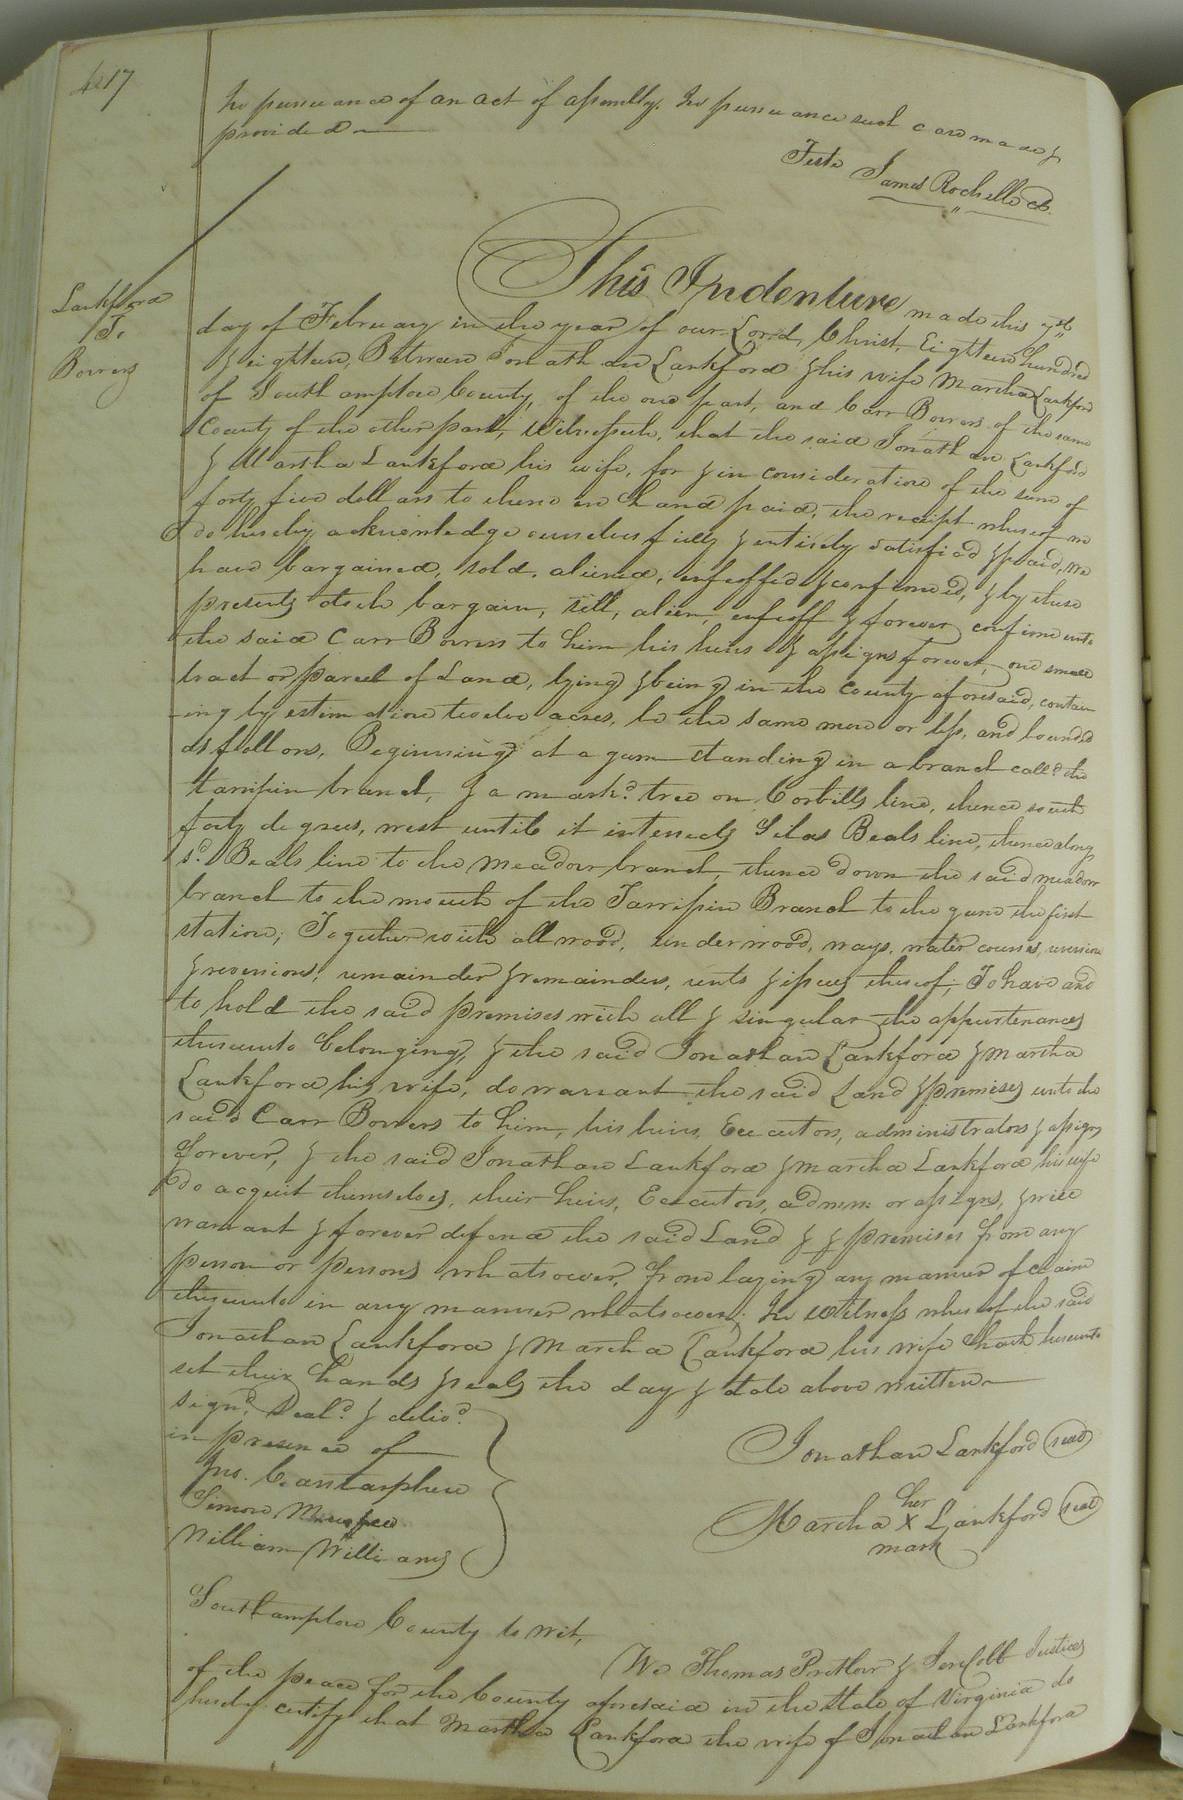 417
In pursuance of an act of assembly. In pursuance such case made &
provided
Teste James Rochelle Ck.
Lankford
To
Bowers
This Indenture made this
day of February in the year of our Lord, Christ, Eighteen hundred
& eighteen, Between Jonathan Lankford & his wife Martha Lankford
of Southampton County, of the one part, and Carr Bowers of the same
County of the other part, Witnesseth, that the said Jonathan Lankford
& Martha Lankford his wife, for & in consideration of the sum of
forty five dollars to them in hand paid, the receipt whereof we
do hereby acknowledge ourselves fully & entirely satisfied & paid, we
have bargained, sold, aliened, enfeoffed & confirmed, & by these
presents doth bargain, sell, alien, enfeoff & forever confirm unto
the said Carr Bowers to him his heirs & assigns forever, one small
tract or parcel of Land, lying & being in the County aforesaid, contain
-ing by estimation twelve acres, be the same more or less, and bounded
as follons, Beginning at a gum standing in a branch calld. the
tarripin branch, & a markd. tree on Corbills line, thence south
forty degrees, west until it intersects Silas Beals line, thence along
sd. Beals line to the meadow branch, thence down the said meadow
branch to the mouth of the Tarripin Branch to the gum the first
station; Together with all wood, underwood, ways, water courses, reversion
& reversions, remainder & remainders, rents & issues thereof; To have and
to hold the said premises with all & singular the appurtenances
thereunto belonging, & the said Jonathan Lankford & Martha
Lankford his wife, do warrant the said Land & premises unto the
said Carr Bowers to him, his heirs, Executors, administrators & assigns
forever, & the said Jonathan Lankford & Martha Lankford his wife
do acquit themselves, their heirs, Executors, admrs. or assigns, & will
warrant & forever defend the said Land & & premises from any
person or persons whatsoever, from laying any manner of claim
thereunto in any manner whatsoever; In Witness whereof the said
Jonathan Lankford & Martha Lankford his wife hath hereunto
set their hands & seals the day & date above written
signd. Seald. & delivd.
in presence of
Jno. C. Cantarphen
Simon Murfee
William Williams
Jonathan Lankford seal
her
Martha X Lankford seal
mark
Southampton County to wit,
We Thomas Pretlow & Justices
of the peace for the County aforesaid in the State of Virginia do
hereby certify that Martha Lankford the wife of Jonathan Lankford